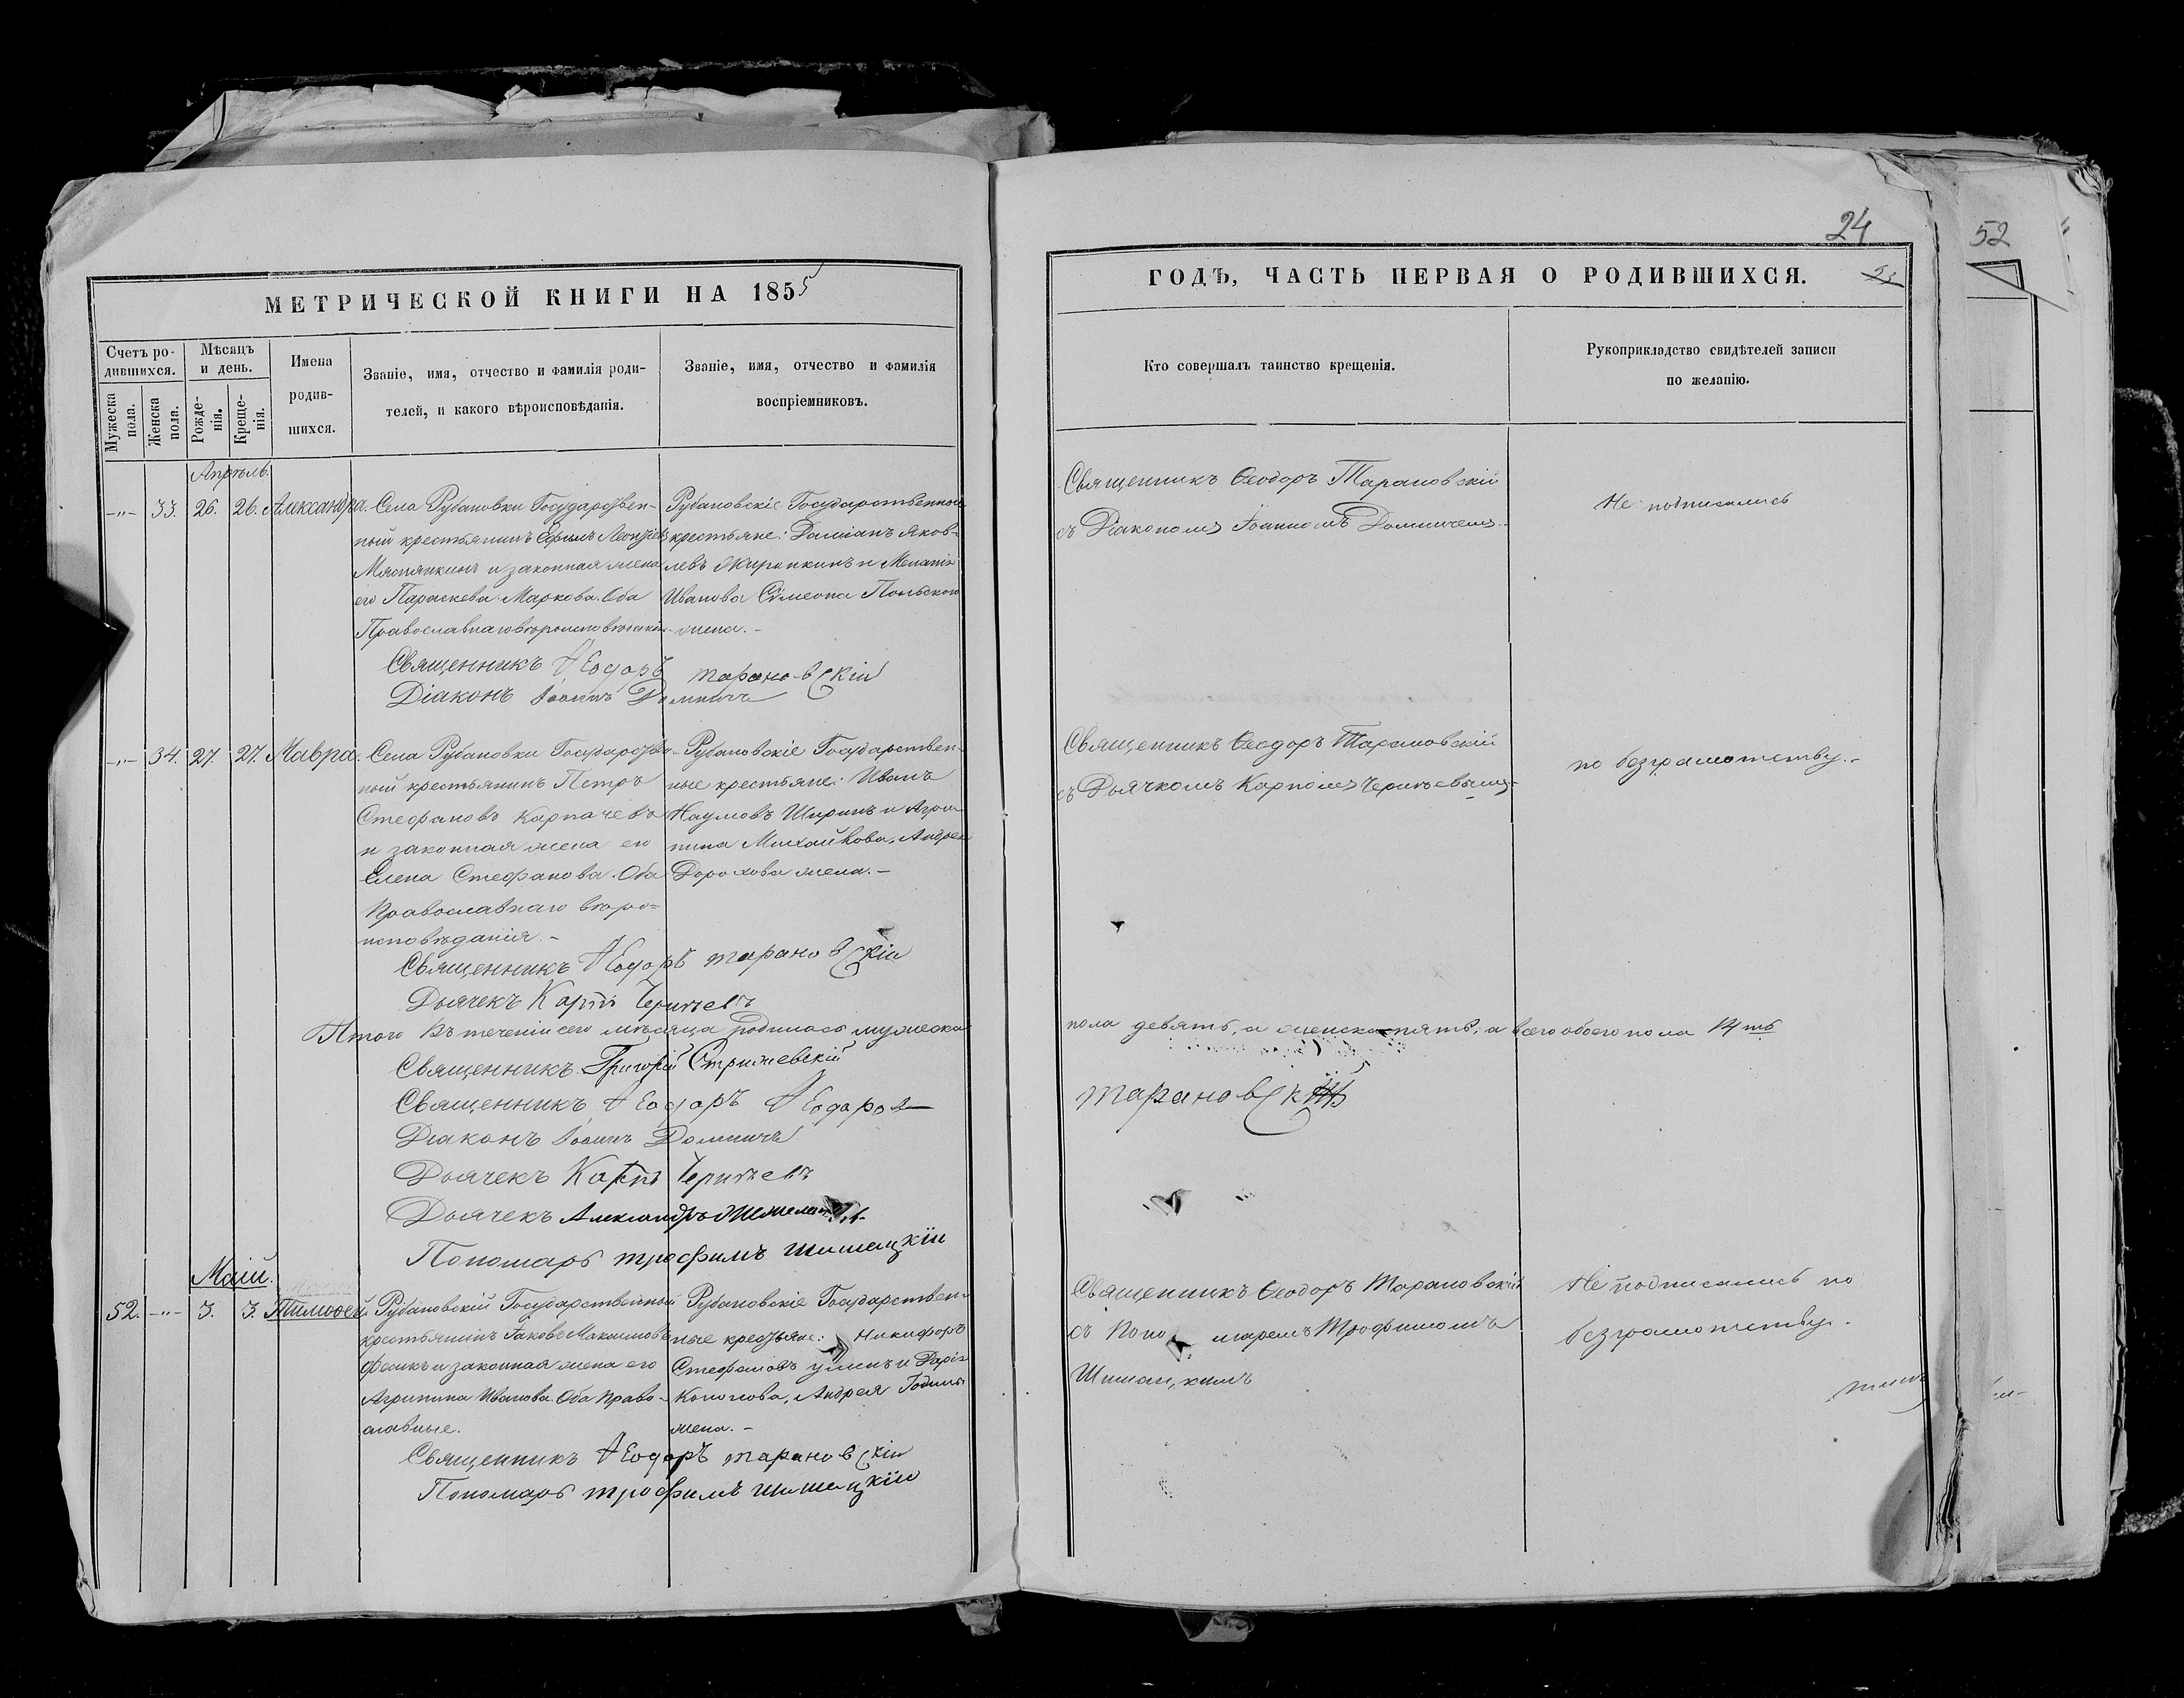 МЕТРИЧЕСКОЙ КНИГИ НА 1855
Счетъ ро-
дившихся.
Мужеска
пола.
Женска
пола.
Мѣсяцъ
и день.
Рожде-
нія.
Креще-
нія.
Имена
родив-
шихся.
Званіе, имя, отчество и фамилія роди-
телей, и какого вѣроисповѣданія.
Званіе, имя, отчество и фамилія
воспріемниковъ.
Апрѣль.
-"- 33. 26. 26. Александра.
Села Рубановки Государствен-
ный крестьянинъ Ефимъ Леонтіевъ
и законная жена
его Параскева Маркова. Оба
Православнаго вѣроисповѣданія.
Рубановскіе Государственные
крестьяне: Даміанъ Яков-
левъ и Меланія
Иванова Сѵмеона Польскаго
жена. -
Священникъ Ѳеодоръ Тарановскій
Діаконъ Іоаннъ
-"- 34. 27. 27. Мавра.
Села Рубановки Государствен-
ный крестьянинъ Петръ
Стефановъ Карпачевъ
и законная жена его
Елена Стефанова. Оба
Православнаго вѣро=
исповѣданія. -
Рубановскіе Государствен-
ные крестьяне: Иванъ
Наумовъ Ширинъ и Агри-
пина Михайлова, Андрея
Дорохова жена. -
Священникъ Ѳеодоръ Тарановскій
Дьячекъ Карпъ
Итого Въ теченіи сего мѣсяца родилось мужеска
Священникъ Григорій Стрижевскій
Священникъ Ѳеодоръ Ѳеодоровъ
Діаконъ Іоаннъ
Дьячекъ Карпъ
Дьячекъ Александръ
Пономарь Трофимъ Шишацкій
Маій.
52. -"- 3. 3. Тимоѳей
Рубановскій Государственный
крестьянинъ Іаковъ Максимовъ
и законная жена его
Агрипина Иванова. Оба Право-
славные.
Рубановскіе Государствен-
ные крестьяне: Никифоръ
Стефановъ и Дарія
Кононова, Андрея
жена. -
Священникъ Ѳеодоръ Тарановскій
Пономарь Трофимъ Шишацкій
24
52
ГОДЪ, ЧАСТЬ ПЕРВАЯ О РОДИВШИХСЯ.
Кто совершалъ таинство крещенія.
Рукоприкладство свидѣтелей записи
по желанію.
Священникъ Ѳеодоръ Тарановскій
съ Діакономъ Іоанномъ
Не подписались
Священникъ Ѳеодоръ Тарановскій
съ Дьячкомъ Карпомъ
по безграмотству. -
пола девять, а женска пять; а всего обоего пола 14ть
Тарановскій
Священникъ Ѳеодоръ Тарановскій
съ Понамаремъ Трофимомъ
Шишацкимъ
Не подписались по
безграмотству.